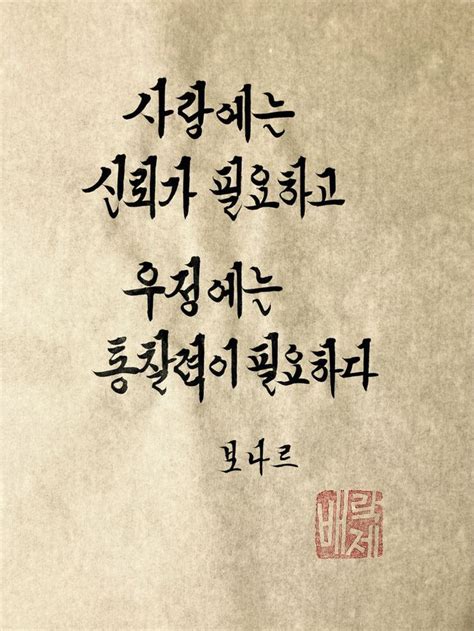 사랑에는
신뢰가 필요하고
우정에는
통찰력이 필요하다
보나르
배락제